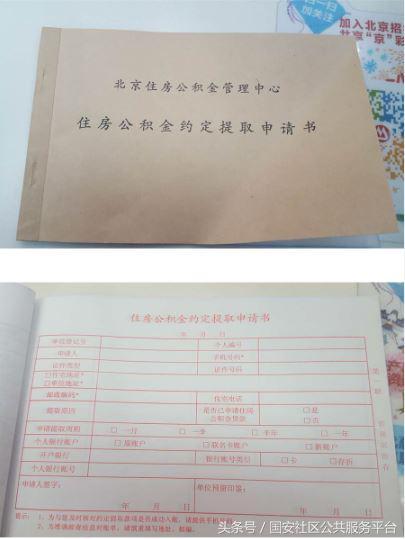 扫一扫
加关注
加入北京招
北京“京”彩
北京住房公积金管理中心
住房公积金约定提取申请书
住房公积金约定提取申请书
年 月 日
单位登记号
个人编号
申请人
手机号码*
证件类型
证件号码
□住宅地址*
□单位地址*
邮政编码*
住宅电话
提取原因
是否已申请住房公积金贷款
□是
□否
申请提取周期 □一月 □一季 □半年 □一年
个人银行账户 □原账户 □联名卡账户 □新账户
开户银行
银行账号类别 □卡 □存折
个人银行账号
申请人签字:
单位预留印鉴:
年 月 日
年 月 日
第一联
提示:1、为与您及时核对约定提取款项是否成功入账,请提供手机号码
2、为准确邮寄给您对账单,请慎重填写地址、邮编。
头条号/国安社区公共服务平台